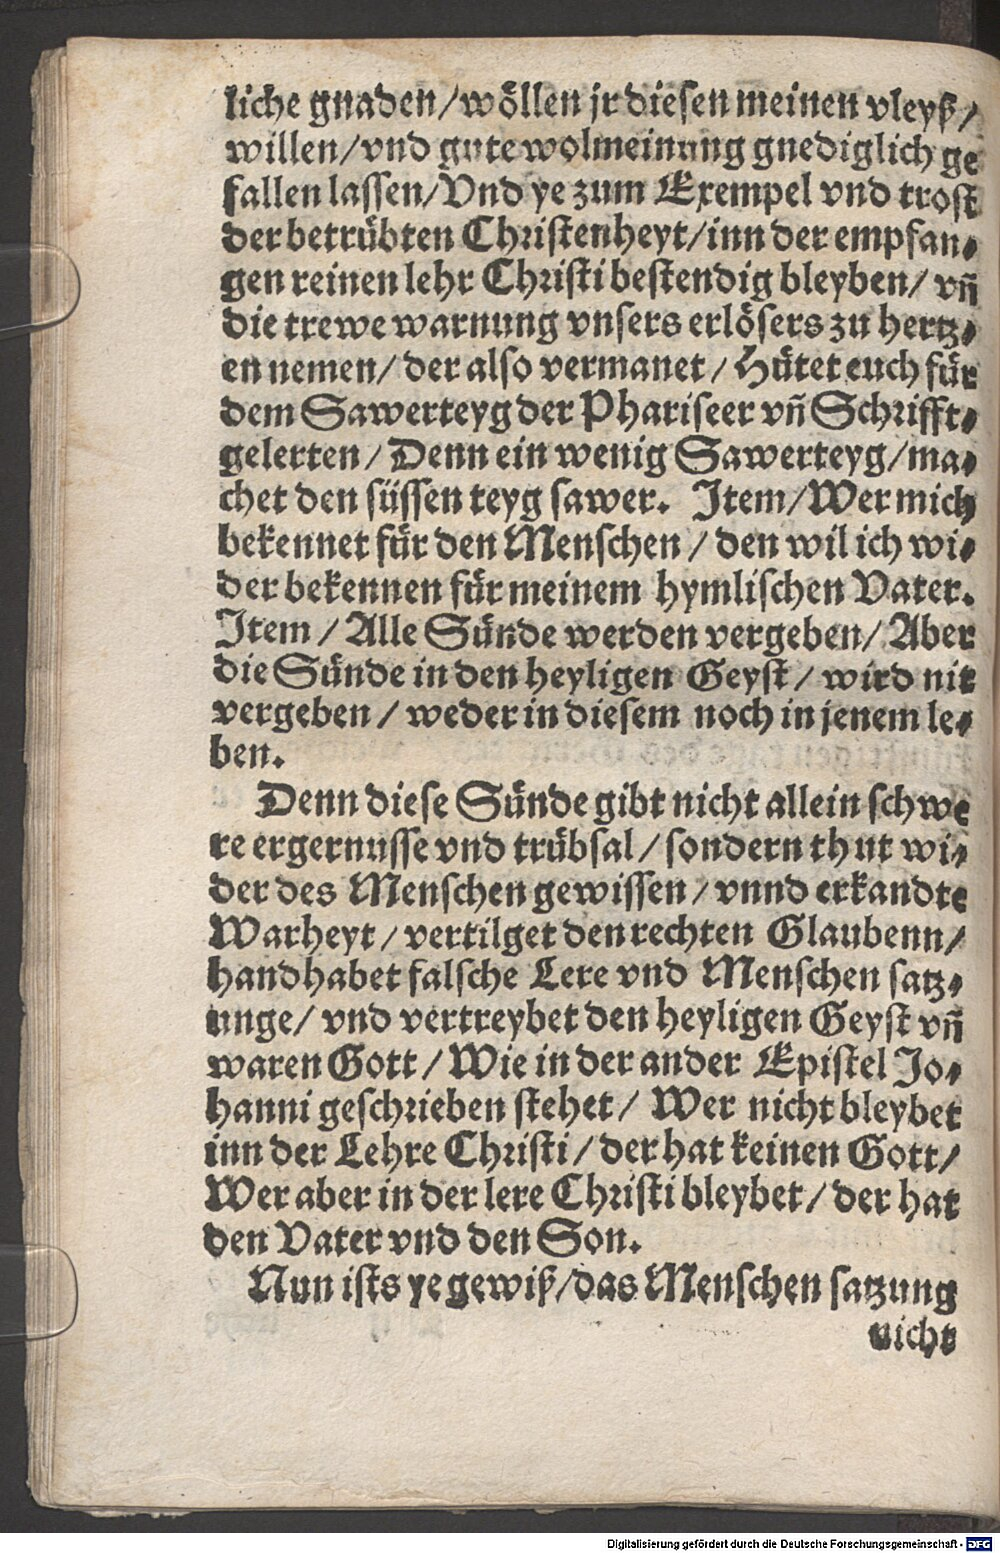 liche gnaden/wöllen jr diesen meinen vleyß/
willen/vnd gute wolmeinung gnediglich ge
fallen lassen/Vnd ye zum Exempel vnd trost
der betrübten Christenheyt/inn der empfan⸗
gen reinen lehr Christi bestendig bleyben/ vñ
die trewe warnung vnsers erlösers zu hertz⸗
en nemen/ der also vermanet / Hütet euch für
dem Sawerteyg der Phariseer vñ Schrifft⸗
gelerten / Denn ein wenig Sawerteyg/ma⸗
chet den süssen teyg sawer. Item/Wer mich
bekennet für den Menschen / den wil ich wi⸗
der bekennen für meinem hymlischen Vater.
Item / Alle Sünde werden vergeben/ Aber
die Sünde in den heyligen Geyst / wird nit
vergeben / weder in diesem noch in jenem le⸗
ben.
Denn diese Sünde gibt nicht allein schwe
re ergernusse vnd trübsal / sondern thut wi⸗
der des Menschen gewissen / vnnd erkandte
Warheyt / vertilget den rechten Glaubenn/
handhabet falsche Lere vnd Menschen satz⸗
unge/ vnd vertreybet den heyligen Geyst vñ
waren Gott / Wie in der ander Epistel Jo⸗
hanni geschrieben stehet / Wer nicht bleybet
inn der Lehre Christi / der hat keinen Gott/
Wer aber in der lere Christi bleybet / der hat
den Vater vnd den Son.
Nun ists ye gewiß/das Menschen satzung
nicht
Digitalisierung gefördert durch die Deutsche Forschungsgemeinschaft - DFG